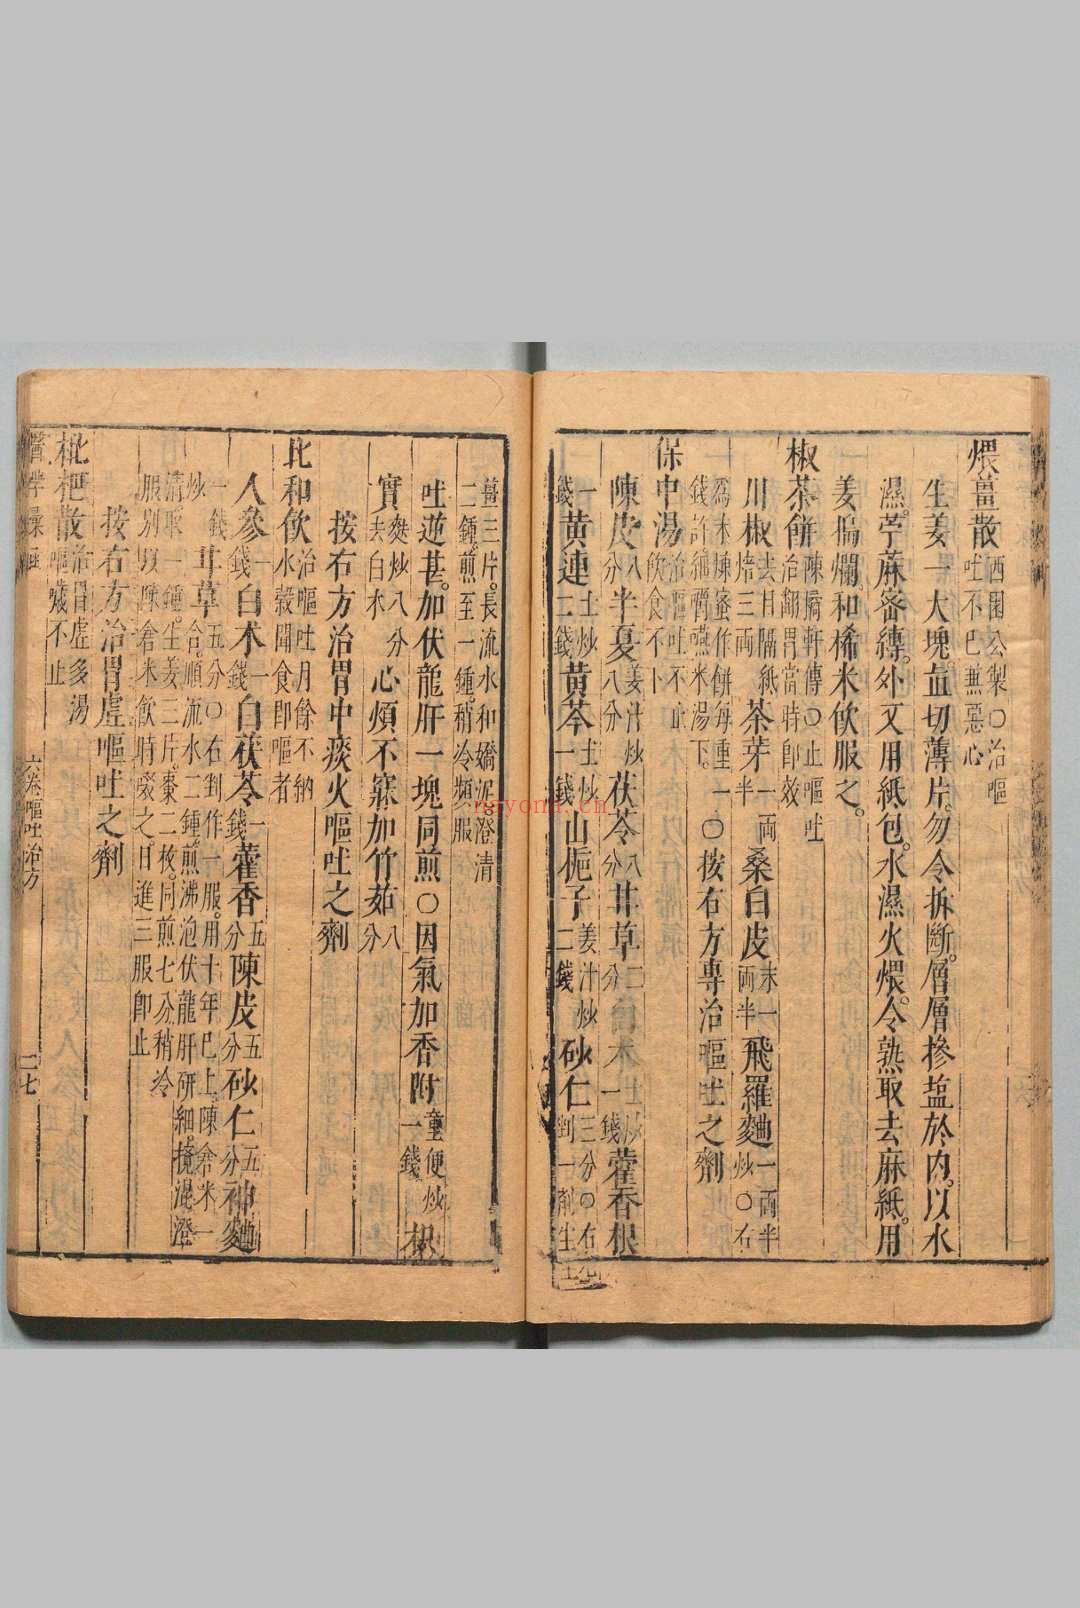 煨薑散西園公製○治嘔吐不已兼惡心
生姜一大塊直切薄片。勿令拆斷。層層摻塩於內。以水
濕。苧蔴密縛。外又用紙包。水濕火煨。令熟取去麻紙。用
姜搗爛和稀米飲服之。
椒茶餅陳橋軒傳○止嘔吐治翻胃當時即效
川椒去目隔紙焙三兩茶芽一兩半桑白皮末一兩半飛羅麵一兩半炒○右
為末煉蜜作餅每重一錢許細嚼米湯下。○按右方專治嘔吐之劑
保中湯治嘔吐不止飲食不下
陳皮八分半夏姜汁炒八分茯苓八分甘草二分白术土炒一錢藿香梗
一錢黄連土炒二錢黄芩土炒一錢山梔子姜汁炒二錢砂仁三分○右剉一劑生
薑三片。長流水和嬌泥。澄清二鍾。煎至一鍾。稍冷頻服
吐逆甚。加伏龍肝一塊同煎○因氣加香附童便炒一錢枳
實麩炒八分去白水心煩不寐加竹茹八分
按右方治胃中痰火嘔吐之劑
比和飲治嘔吐月餘不納水穀聞食即嘔者
人參一錢白术一錢白茯苓一錢藿香五分陳皮五分砂仁五分神麯
炒一錢甘草五分○右剉作一服。用十年已上。陳倉米一合。順流水二鍾。煎沸泡伏龍肝研細。攪混澄
清取一鍾。生姜三片。棗二枚。同煎七分稍冷服別以陳倉米飲時啜之。日進三服即止
按右方治胃虛嘔吐之劑
枇杷散治胃虛多渴嘔噦不止
六卷嘔吐治方
二七
nayona.cn